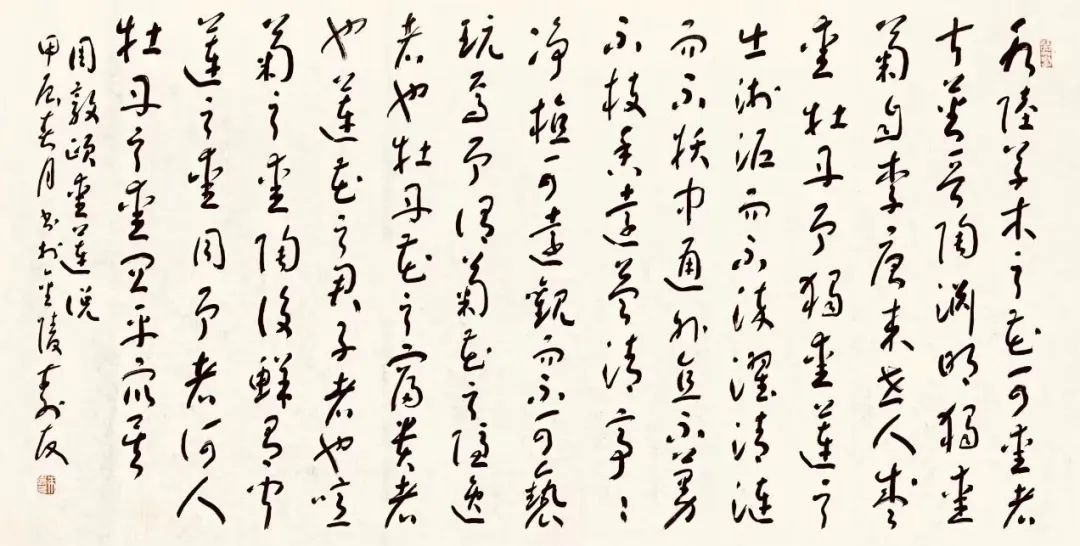 水陸草木之花可愛者
甚蕃晉陶淵明獨愛
菊自李唐来世人盛
愛牡丹予獨愛蓮之
出淤泥而不染濯清漣
而不妖中通外直不蔓
不枝香遠益清亭〻
净植可遠觀而不可褻
玩焉予謂菊花之隱逸
者也牡丹花之富貴者
也蓮花之君子者也噫
菊之愛陶後鮮有聞
蓮之愛同予者何人
牡丹之愛宜乎衆矣
周敦頤愛蓮説
甲辰春月書於金陵壽友